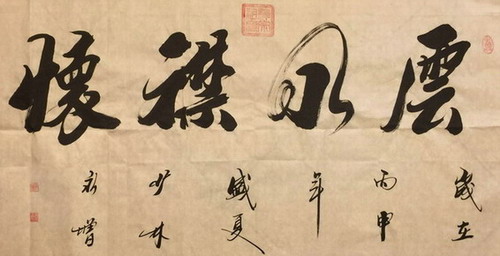 雲水襟懷
歲在
丙申
年
盛夏
少林
增